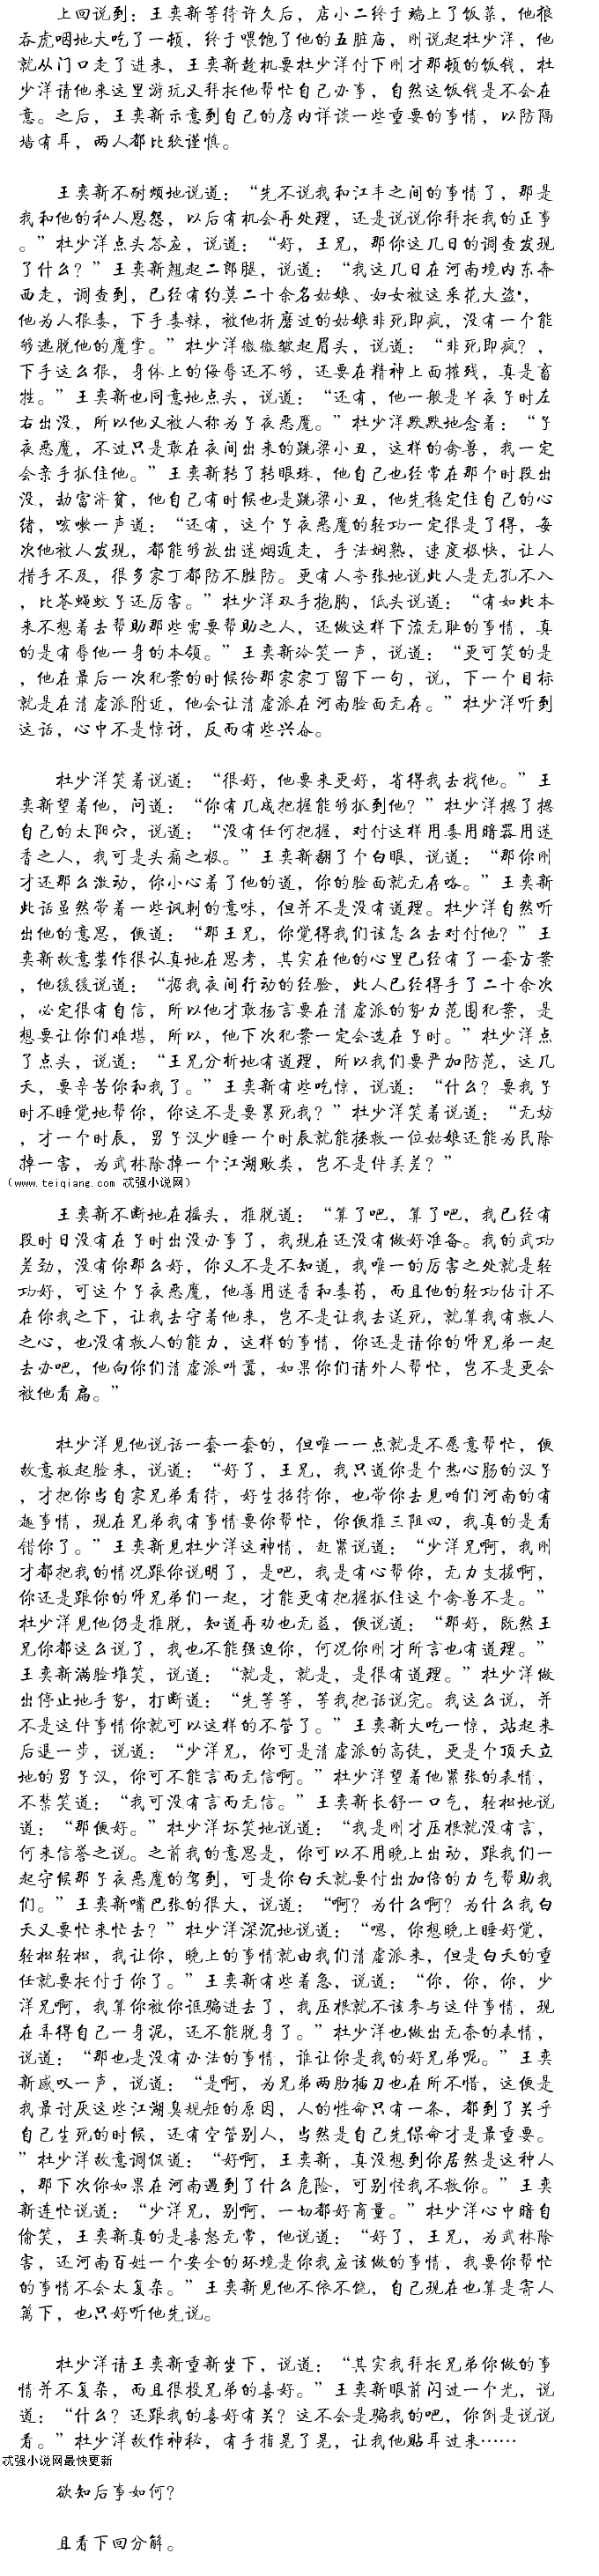 上回说到：王奕新等待许久后，店小二终于端上了饭菜，他狼
吞虎咽地大吃了一顿，终于喂饱了他的五脏庙，刚说起杜少洋，他
就从门口走了进来，王奕新趁机要杜少洋付下刚才那顿的饭钱，杜
少洋请他来这里游玩又拜托他帮忙自己办事，自然这饭钱是不会在
意。之后，王奕新示意到自己的房内详谈一些重要的事情，以防隔
墙有耳，两人都比较谨慎。
王奕新不耐烦地说道：“先不说我和江丰之间的事情了，那是
我和他的私人恩怨，以后有机会再处理，还是说说你拜托我的正事
。”杜少洋点头答应，说道：“好，王兄，那你这几日的调查发现
了什么？”王奕新翘起二郎腿，说道：“我这几日在河南境内东奔
西走，调查到，已经有约莫二十余名姑娘、妇女被这采花大盗，
他为人狠毒，下手毒辣，被他折磨过的姑娘非死即疯，没有一个能
够逃脱他的魔掌。”杜少洋微微皱起眉头，说道：“非死即疯？，
下手这么狠，身体上的侮辱还不够，还要在精神上面摧残，真是畜
牲。”王奕新也同意地点头，说道：“还有，他一般是半夜子时左
右出没，所以他又被人称为子夜恶魔。”杜少洋默默地念着：“子
夜恶魔，不过只是敢在夜间出来的跳梁小丑，这样的禽兽，我一定
会亲手抓住他。”王奕新转了转眼珠，他自己也经常在那个时段出
没，劫富济贫，他自己有时候也是跳梁小丑，他先稳定住自己的心
绪，咳嗽一声道：“还有，这个子夜恶魔的轻功一定很是了得，每
次他被人发现，都能够放出迷烟遁走，手法娴熟，速度极快，让人
措手不及，很多家丁都防不胜防。更有人夸张地说此人是无孔不入
，比苍蝇蚊子还厉害。”杜少洋双手抱胸，低头说道：“有如此本
来不想着去帮助那些需要帮助之人，还做这样下流无耻的事情，真
的是有辱他一身的本领。”王奕新冷笑一声，说道：“更可笑的是
，他在最后一次犯案的时候给那家家丁留下一句，说，下一个目标
就是在清虚派附近，他会让清虚派在河南脸面无存。”杜少洋听到
这话，心中不是惊讶，反而有些兴奋。
杜少洋笑着说道：“很好，他要来更好，省得我去找他。”王
奕新望着他，问道：“你有几成把握能够抓到他？”杜少洋摁了摁
自己的太阳穴，说道：“没有任何把握，对付这样用毒用暗器用迷
香之人，我可是头痛之极。”王奕新翻了个白眼，说道：“那你刚
才还那么激动，你小心着了他的道，你的脸面就无存咯。”王奕新
此话虽然带着一些讽刺的意味，但并不是没有道理。杜少洋自然听
出他的意思，便道：“那王兄，你觉得我们该怎么去对付他？”王
奕新故意装作很认真地在思考，其实在他的心里已经有了一套方案
，他缓缓说道：“据我夜间行动的经验，此人已经得手了二十余次
，必定很有自信，所以他才敢扬言要在清虚派的势力范围犯案，是
想要让你们难堪，所以，他下次犯案一定会选在子时。”杜少洋点
了点头，说道：“王兄分析地有道理，所以我们要严加防范，这几
天，要辛苦你和我了。”王奕新有些吃惊，说道：“什么？要我子
时不睡觉地帮你，你这不是要累死我？”杜少洋笑着说道：“无妨
，才一个时辰，男子汉少睡一个时辰就能拯救一位姑娘还能为民除
掉一害，为武林除掉一个江湖败类，岂不是件美差？”
（www.teiqiang.com 忒强小说网）
王奕新不断地在摇头，推脱道：“算了吧，算了吧，我已经有
段时日没有在子时出没办事了，我现在还没有做好准备。我的武功
差劲，没有你那么好，你又不是不知道，我唯一的厉害之处就是轻
功好，可这个子夜恶魔，他善用迷香和毒药，而且他的轻功估计不
在你我之下，让我去守着他来，岂不是让我去送死，就算我有救人
之心，也没有救人的能力，这样的事情，你还是请你的师兄弟一起
去办吧，他向你们清虚派叫嚣，如果你们请外人帮忙，岂不是更会
被他看扁。”
杜少洋见他说话一套一套的，但唯一一点就是不愿意帮忙，便
故意板起脸来，说道：“好了，王兄，我只道你是个热心肠的汉子
，才把你当自家兄弟看待，好生招待你，也带你去见咱们河南的有
趣事情，现在兄弟我有事情要你帮忙，你便推三阻四，我真的是看
错你了。”王奕新见杜少洋这神情，赶紧说道：“少洋兄啊，我刚
才都把我的情况跟你说明了，是吧，我是有心帮你，无力支援啊，
你还是跟你的师兄弟们一起，才能更有把握抓住这个禽兽不是。”
杜少洋见他仍是推脱，知道再劝也无益，便说道：“那好，既然王
兄你都这么说了，我也不能强迫你，何况你刚才所言也有道理。”
王奕新满脸堆笑，说道：“就是，就是，是很有道理。”杜少洋做
出停止地手势，打断道：“先等等，等我把话说完。我这么说，并
不是这件事情你就可以这样的不管了。”王奕新大吃一惊，站起来
后退一步，说道：“少洋兄，你可是清虚派的高徒，更是个顶天立
地的男子汉，你可不能言而无信啊。”杜少洋望着他紧张的表情，
不禁笑道：“我可没有言而无信。”王奕新长舒一口气，轻松地说
道：“那便好。”杜少洋坏笑地说道：“我是刚才压根就没有言，
何来信誉之说。之前我的意思是，你可以不用晚上出动，跟我们一
起守候那子夜恶魔的驾到，可是你白天就要付出加倍的力气帮助我
们。”王奕新嘴巴张的很大，说道：“啊？为什么啊？为什么我白
天又要忙来忙去？”杜少洋深沉地说道：“嗯，你想晚上睡好觉，
轻松轻松，我让你，晚上的事情就由我们清虚派来，但是白天的重
任就要托付于你了。”王奕新有些着急，说道：“你，你，你，少
洋兄啊，我算你被你诓骗进去了，我压根就不该参与这件事情，现
在弄得自己一身泥，还不能脱身了。”杜少洋也做出无奈的表情，
说道：“那也是没有办法的事情，谁让你是我的好兄弟呢。”王奕
新感叹一声，说道：“是啊，为兄弟两肋插刀也在所不惜，这便是
我最讨厌这些江湖臭规矩的原因，人的性命只有一条，都到了关乎
自己生死的时候，还有空管别人，当然是自己先保命才是最重要。
”杜少洋故意调侃道：“好啊，王奕新，真没想到你居然是这种人
，那下次你如果在河南遇到了什么危险，可别怪我不救你。”王奕
新连忙说道：“少洋兄，别啊，一切都好商量。”杜少洋心中暗自
偷笑，王奕新真的是喜怒无常，他说道：“好了，王兄，为武林除
害，还河南百姓一个安全的环境是你我应该做的事情，我要你帮忙
的事情不会太复杂。”王奕新见他不依不饶，自己现在也算是寄人
篱下，也只好听他先说。
杜少洋请王奕新重新坐下，说道：“其实我拜托兄弟你做的事
情并不复杂，而且很投兄弟的喜好。”王奕新眼前闪过一个光，说
道：“什么？还跟我的喜好有关？这不会是骗我的吧，你倒是说说
看。”杜少洋故作神秘，有手指晃了晃，让我他贴耳过来……
忒强小说网最快更新
欲知后事如何？
且看下回分解。